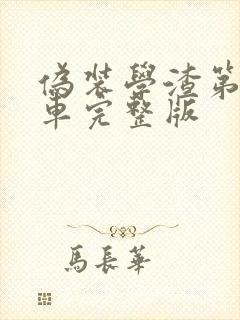 偽裝學渣第
車完整版
馬長華